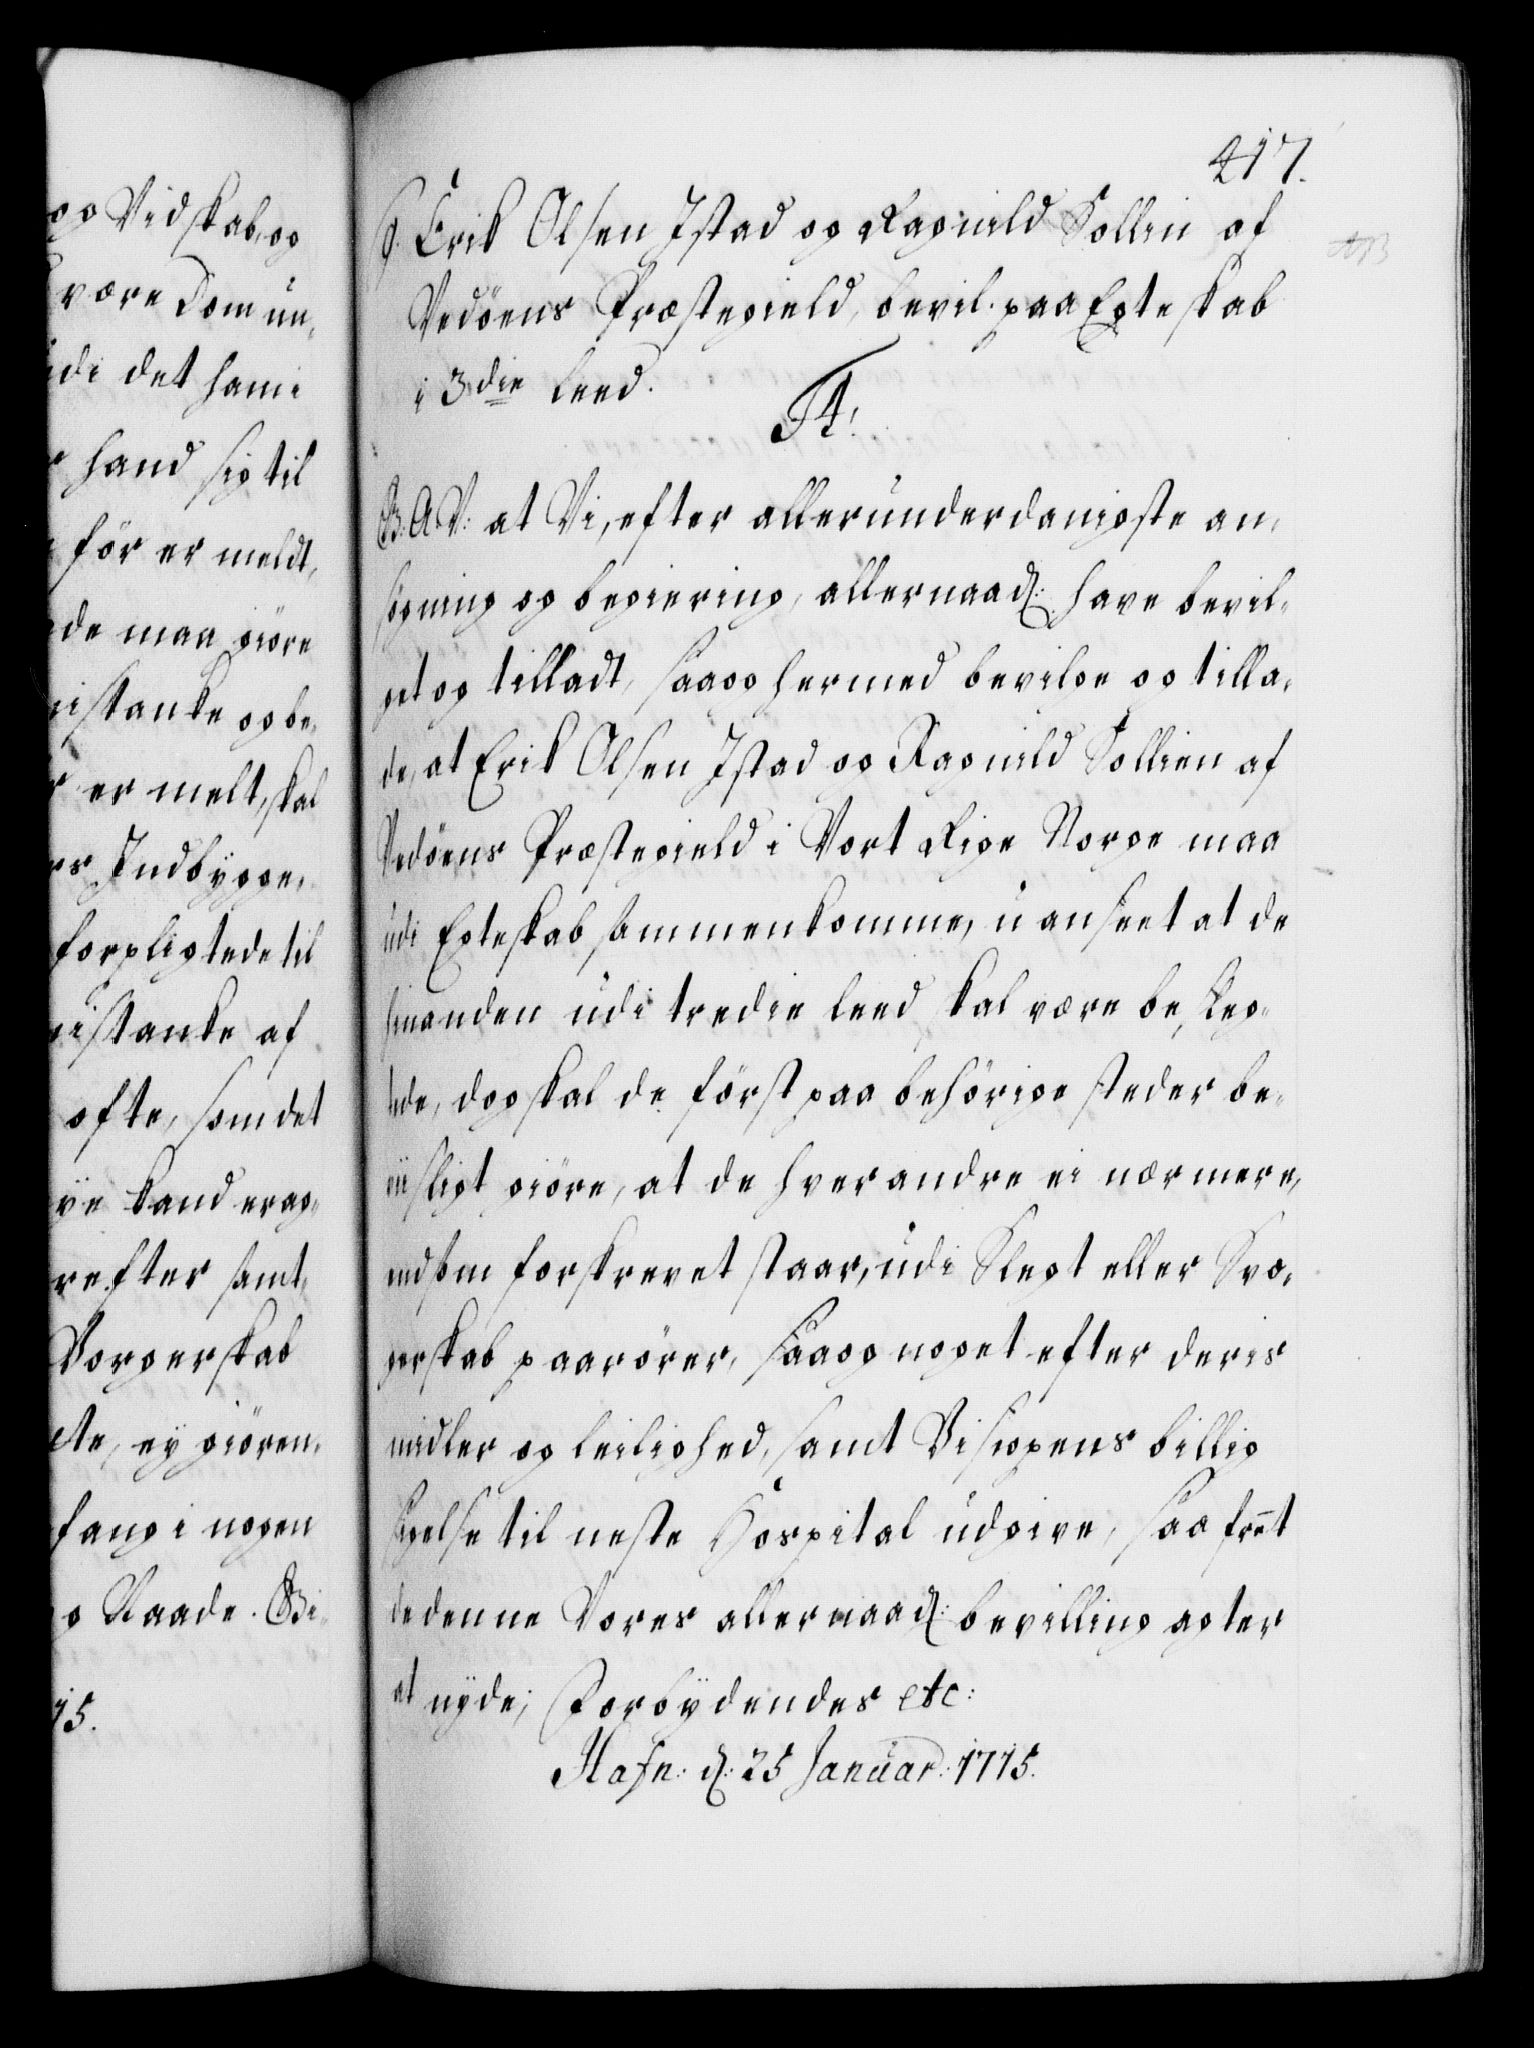 og Vidskab, og
være Dom un,
udi det hami
hand sig til
för er meldt,
de maa giöre
istanke og be,
er melt, skal
rs Indbygge,
forpligtede til
istanke af
ofte, som det
ÿe kand erag,
refter samt,
Vorgerskab
te, eÿ giören,
fang i nogen
Naade. Gi,
15.
417.
S. Erik Olsen Istad og Ragnild Sollin af
Vedöens Præstegield, bevil. paa Egteskab
i 3die Leed.
F4!
G. A. V: at Vi, efter allerunderdanigste an,
sögning og begiering, allernaad: have bevil,
get og tilladt, saa og hermed bevilge og tilla,
de, at Erik Olsen Istad og Ragnild Sollien af
Vedöens Præstegield i Vort Rige Norge maa
udi Egteskab sammenkomme, uanseet at de
hinanden udi tredie leed skal være beslegtede
tede, dog skal de först paa behörige steder be,
viisligt giöre, at de hverandre ei nærmere,
end som forskrevet staar, udi Slegt eller Svo,
gerskab paarörer, saa og noget efter deris
midler og leilighed, samt Bispens billig
sigelse til neste Hospital udgive, saafremt
de denne Vores allernaad: bevilling agter
at nyde; Forbÿdendes etc:
Hafn: d: 25 Januar: 1715.